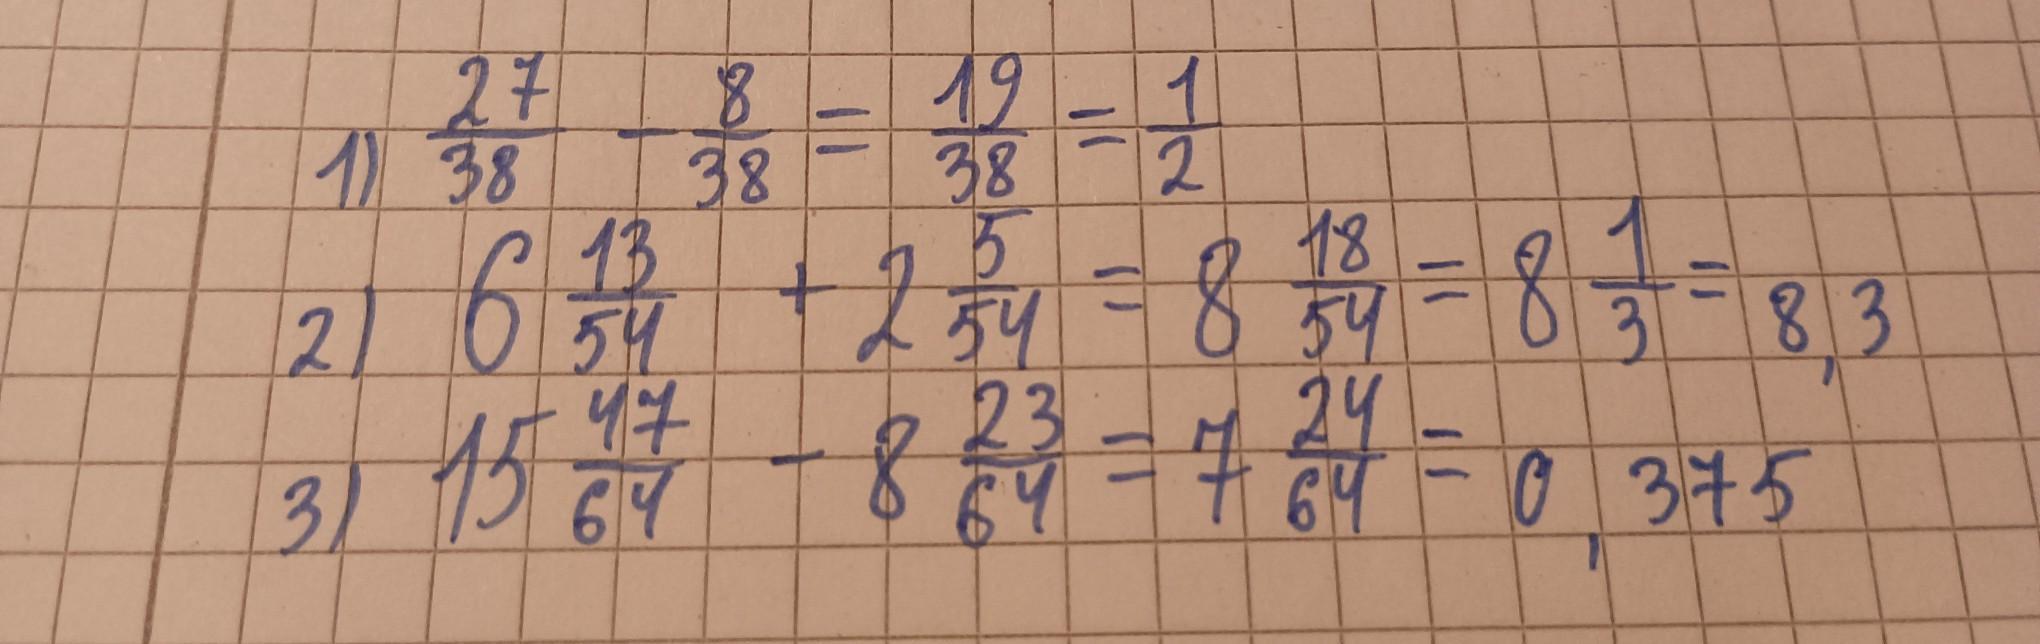 1) 27/38 - 8/38 = 19/38 = 1/2
2) 6 13/54 + 2 5/54 = 8 18/54 = 8 1/3 = 8,3
3) 15 47/64 - 8 23/64 = 7 24/64 = 0,375